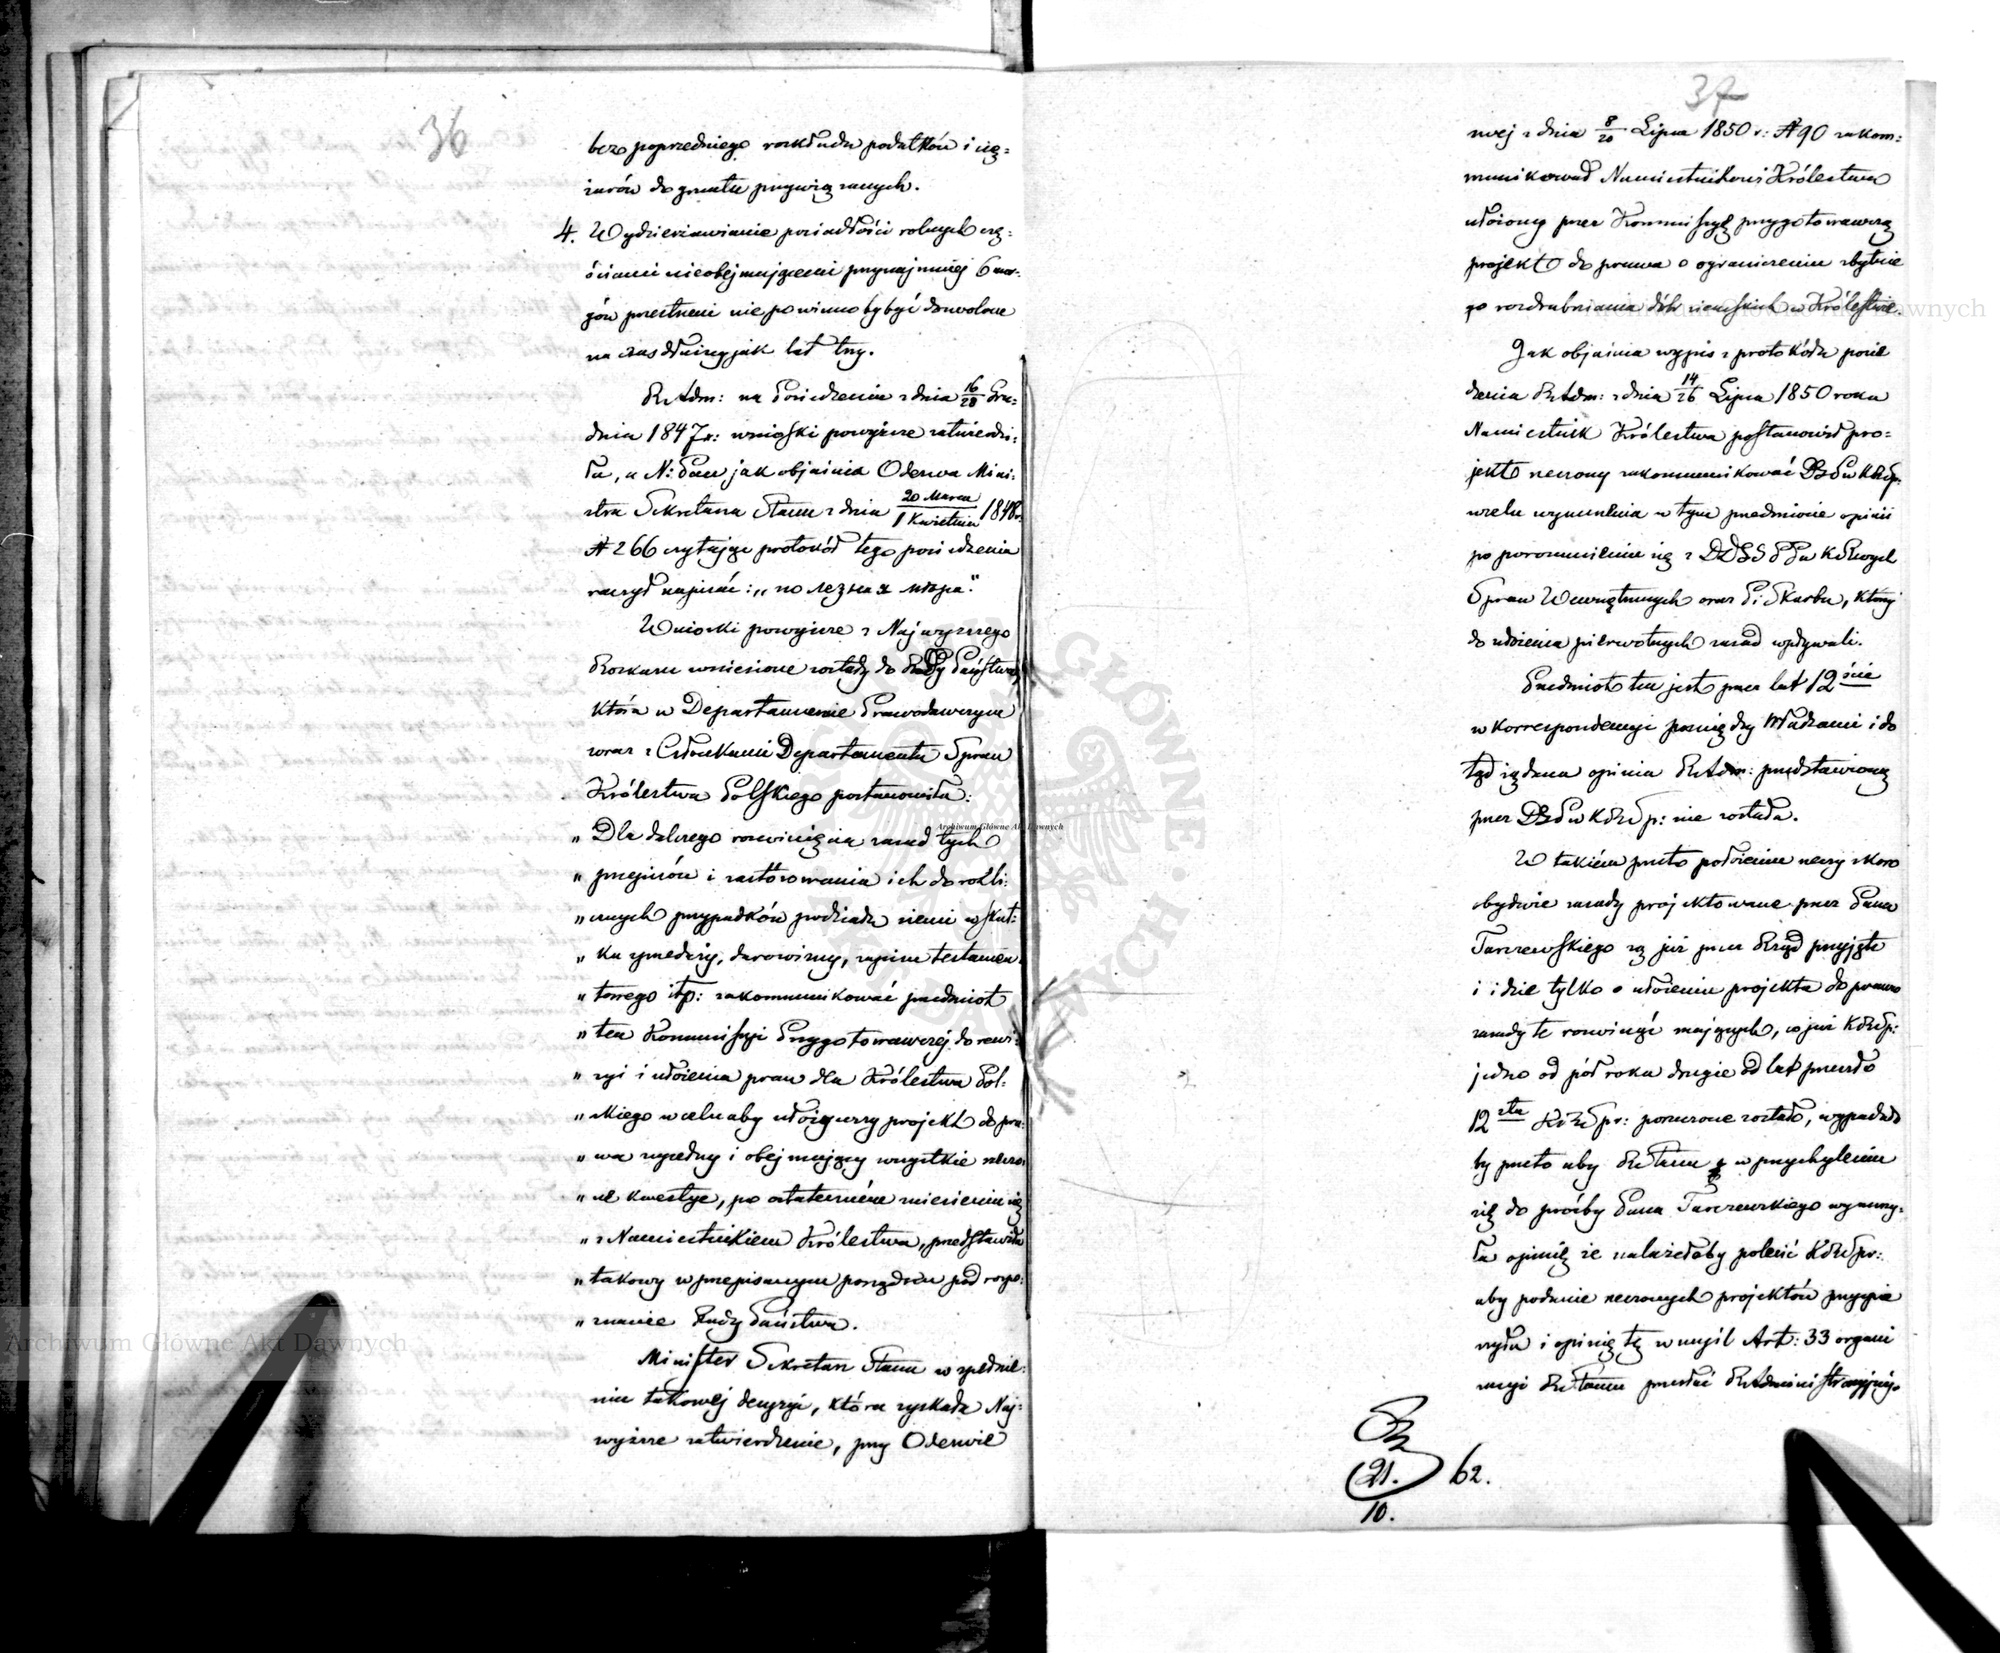 36
bez poprzedniego rozkładu podatków i cię-
żarów do gruntu przywiązanych.
4. Wydzierżawianie posiadłości rolnych czę-
ściami nieobejmującemi przynajmniej 6 mor-
gów przestrzeni nie powinno by być dozwolone
na czas dłuższy jak lat trzy.
R: Adm: na Posiedzeniu z dnia 16/28 Gru-
dnia 1847 r: wnioski powyższe zatwierdzi-
ła, a N: Pan jak objaśnia Odezwa Mini-
stra Sekretarza Stanu z dnia 20 Marca/1 Kwietnia 1848 r.
№ 266 czytając protokół tego posiedzenia
raczył napisać: „полезная мѣра."
Wnioski powyższe z Najwyższego
Rozkazu wniesione zostały do Rady Państwa,
która w Departamencie Prawodawczym
wraz z Członkami Departamentu Spraw
Królestwa Polskiego postanowiła:
„ Dla dalszego rozwinięcia zasad tych
„ przepisów i zastosowania ich do rozli-
„ cznych przypadków podziału ziemi w skut-
„ ku sprzedaży, darowizny, zapisu testamen-
„ towego itp: zakommunikować przedmiot
„ ten Kommissyi Przygotowawczej do rewi-
„ zyi i ułożenia praw dla Królestwa Pol-
„ skiego w celu aby ułożywszy projekt do pra-
„ wa zupełny i obejmujący wszystkie
„ kwestye, po ostateczném zniesieniu się
„ z Namiestnikiem Królestwa, przedstawiła
„ takowy w przepisanym porządku pod rozpo-
„ znanie Rady Państwa.
Minister Sekretarz Stanu w spełnie-
niu takowéj decyzyi, która zyskała Naj-
wyższe zatwierdzenie, przy Odezwie
37
swej z dnia 8/20 Lipca 1850 r: № 90 zakom-
munikował Namiestnikowi Królestwa
ułożony przez Kommissyą przygotowawczą
projekt do prawa o ograniczeniu zbytnie
go rozdrabniania dóbr ziemskich w Królestwie.
Jak objaśnia wypis z protokółu posie
dzenia R: Adm: z dnia 14/26 Lipca 1850 roku
Namiestnik Królestwa postanowił pro-
jekt rzeczony zakommunikować
w celu wynurzenia w tym przedmiocie opinii
po porozumieniu się z
Spraw Wewnętrznych oraz P: i Skarbu, którzy
do ułożenia pierwotnych zasad wpływali.
Przedmiot ten jest przez lat 12ście
w korrespondencyi pomiędzy Władzami i do
tąd żądana opinia R: Adm: przedstawioną
przez nie została.
W takiém przeto położeniu rzeczy skoro
obydwie zasady projektowane przez Pana
Tarczewskiego są już przez Rząd przyjęte
i idzie tylko o ułożenie projektu do prawa
zasady te rozwinąć mających, co już
jedno od pół roku drugie od lat przeszło
12stu poruczone zostało, wypadało
by przeto aby R: Stanu w przychyleniu
się do prośby Pana Tarczewskiego wynurzy-
ła opinię że należałoby polecić
aby podanie rzeczonych projektów przyspie
szyła i opinię tę w myśl Art: 33 organi
zacyi R: Stanu przesłać R: Administracyjnej.
21.
10.
62.
Archiwum Główne Akt Dawnych
Archiwum Główne Akt Dawnych
Archiwum Główne Akt Dawnych